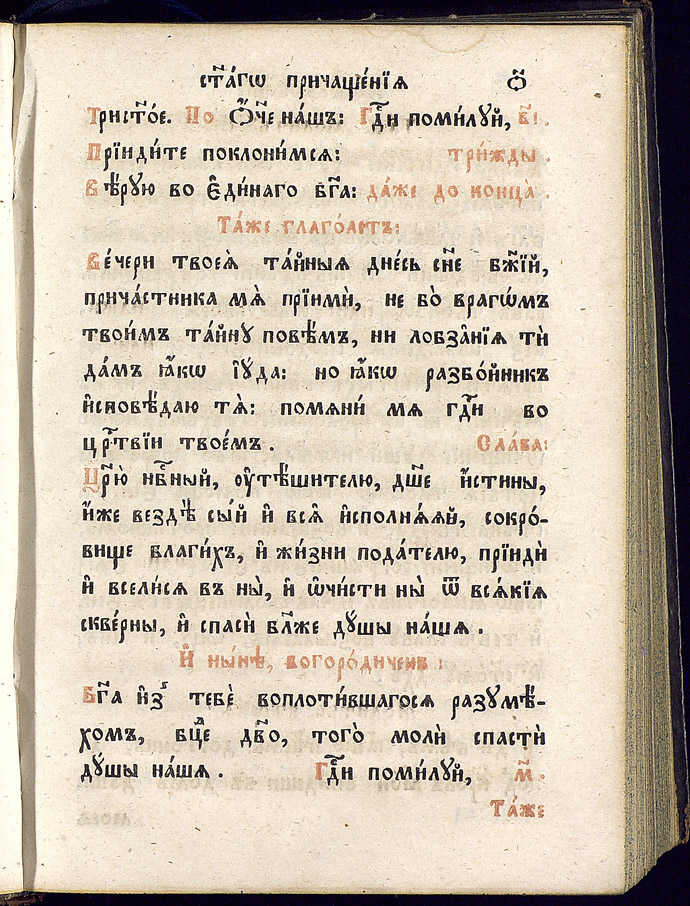 ст҃а́гѡ причаще́нїѧ ѻ҃
Трист҃о́е. По Ѻ҆́ч҃е на́шъ: Гдⷭ҇и поми́лꙋй, в҃і.
Прїиди́те поклони́мсѧ: три́жды.
Вѣ́рꙋю во є҆ди́наго бг҃а: да́же до конца̀.
Та́же глаго́летъ:
Ве́чери твоеѧ̀ та́йныѧ дне́сь сн҃е бж҃їй,
прича́стника мѧ̀ прїимѝ, не бо̀ врагѡ́мъ
твои́мъ та́йнꙋ повѣ́мъ, ни лобза́нїѧ тѝ
да́мъ ꙗ҆́кѡ і҆ꙋ́да: но ꙗ҆́кѡ разбо́йникъ
и҆сповѣ́даю тѧ̀: помѧнѝ мѧ гдⷭ҇и во
црⷭ҇твїи твое́мъ. Сла́ва:
Цр҃ю̀ нбⷭ҇ный, ᲂу҆тѣ́шителю, дш҃е и҆́стины,
и҆́же вездѣ̀ сы́й и҆ всѧ̑ и҆сполнѧ́ѧй, сокро́-
вище благи́хъ, и҆ жи́зни пода́телю, прїидѝ
и҆ всели́сѧ в ны̀, и҆ ѡ҆чи́сти ны̀ ѿ всѧ́кїѧ
скве́рны, и҆ спасѝ бл҃же дꙋ́шы на́шѧ.
И҆ ны́нѣ, богоро́диченъ:
Бг҃а и҆з̾ тебѐ воплоти́вшагосѧ разꙋмѣ́-
хомъ, бцⷣе дв҃о, того̀ молѝ спастѝ
дꙋ́шы на́шѧ. Гдⷭ҇и поми́лꙋй, м҃.
Та́же